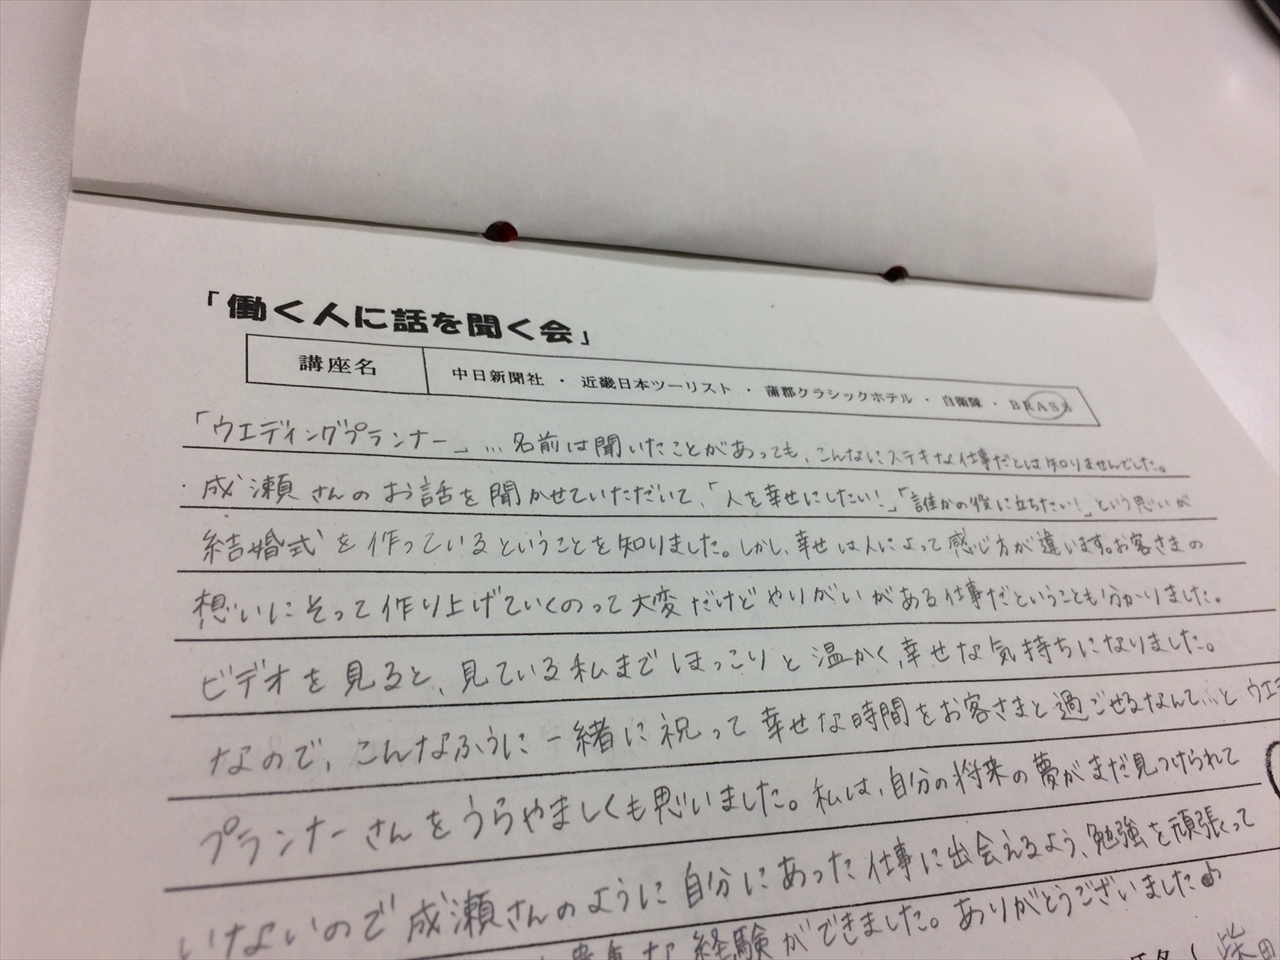 「働く人に話を聞く会」
講座名 中日新聞社 ・ 近畿日本ツーリスト ・ 蒲郡クラシックホテル ・ 自衛隊 ・ BRASS
「ウエディングプランナー」…名前は聞いたことがあっても、こんなにステキな仕事だとは知りませんでした。
成瀬さんのお話を聞かせていただいて、「人を幸せにしたい！」「誰かの役に立ちたい！」という思いが
結婚式を作っているということを知りました。しかし、幸せは人によって感じ方が違います。お客さまの
想いにそって作り上げていくのって大変だけどやりがいがある仕事だということも分かりました。
ビデオを見ると、見ている私までほっこりと温かく、幸せな気持ちになりました。
なので、こんなふうに一緒に祝って幸せな時間をお客さまと過ごせるなんて…とウエ
プランナーさんをうらやましくも思いました。私は、自分の将来の夢がまだ見つけられて
いけないので成瀬さんのように自分にあった仕事に出会えるよう、勉強を頑張って
貴重な経験ができました。ありがとうございました♪
柴田